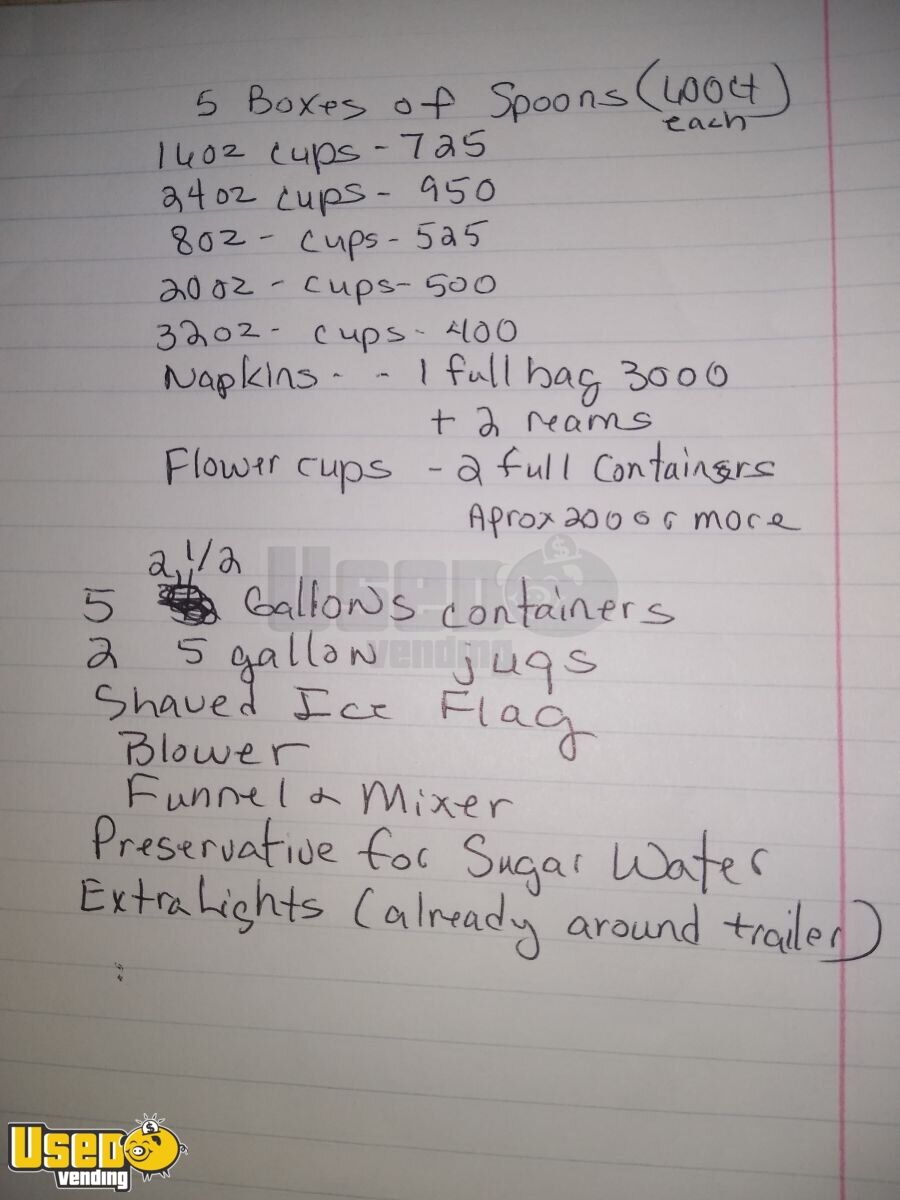 5 Boxes of Spoons (400ct)
each
16oz cups - 725
24oz cups - 950
8oz - cups - 525
20oz - cups - 500
32oz - cups - 400
Napkins - - 1 full bag 3000
+ 2 reams
Flower cups - 2 full Containers
Aprox 200 or more
2 1/2
5 Gallons containers
2 5 gallon jugs
Shaved Ice Flag
Blower
Funnel & Mixer
Preservative for Sugar Water
Extra Lights (already around trailer)
Used vending
Used vending